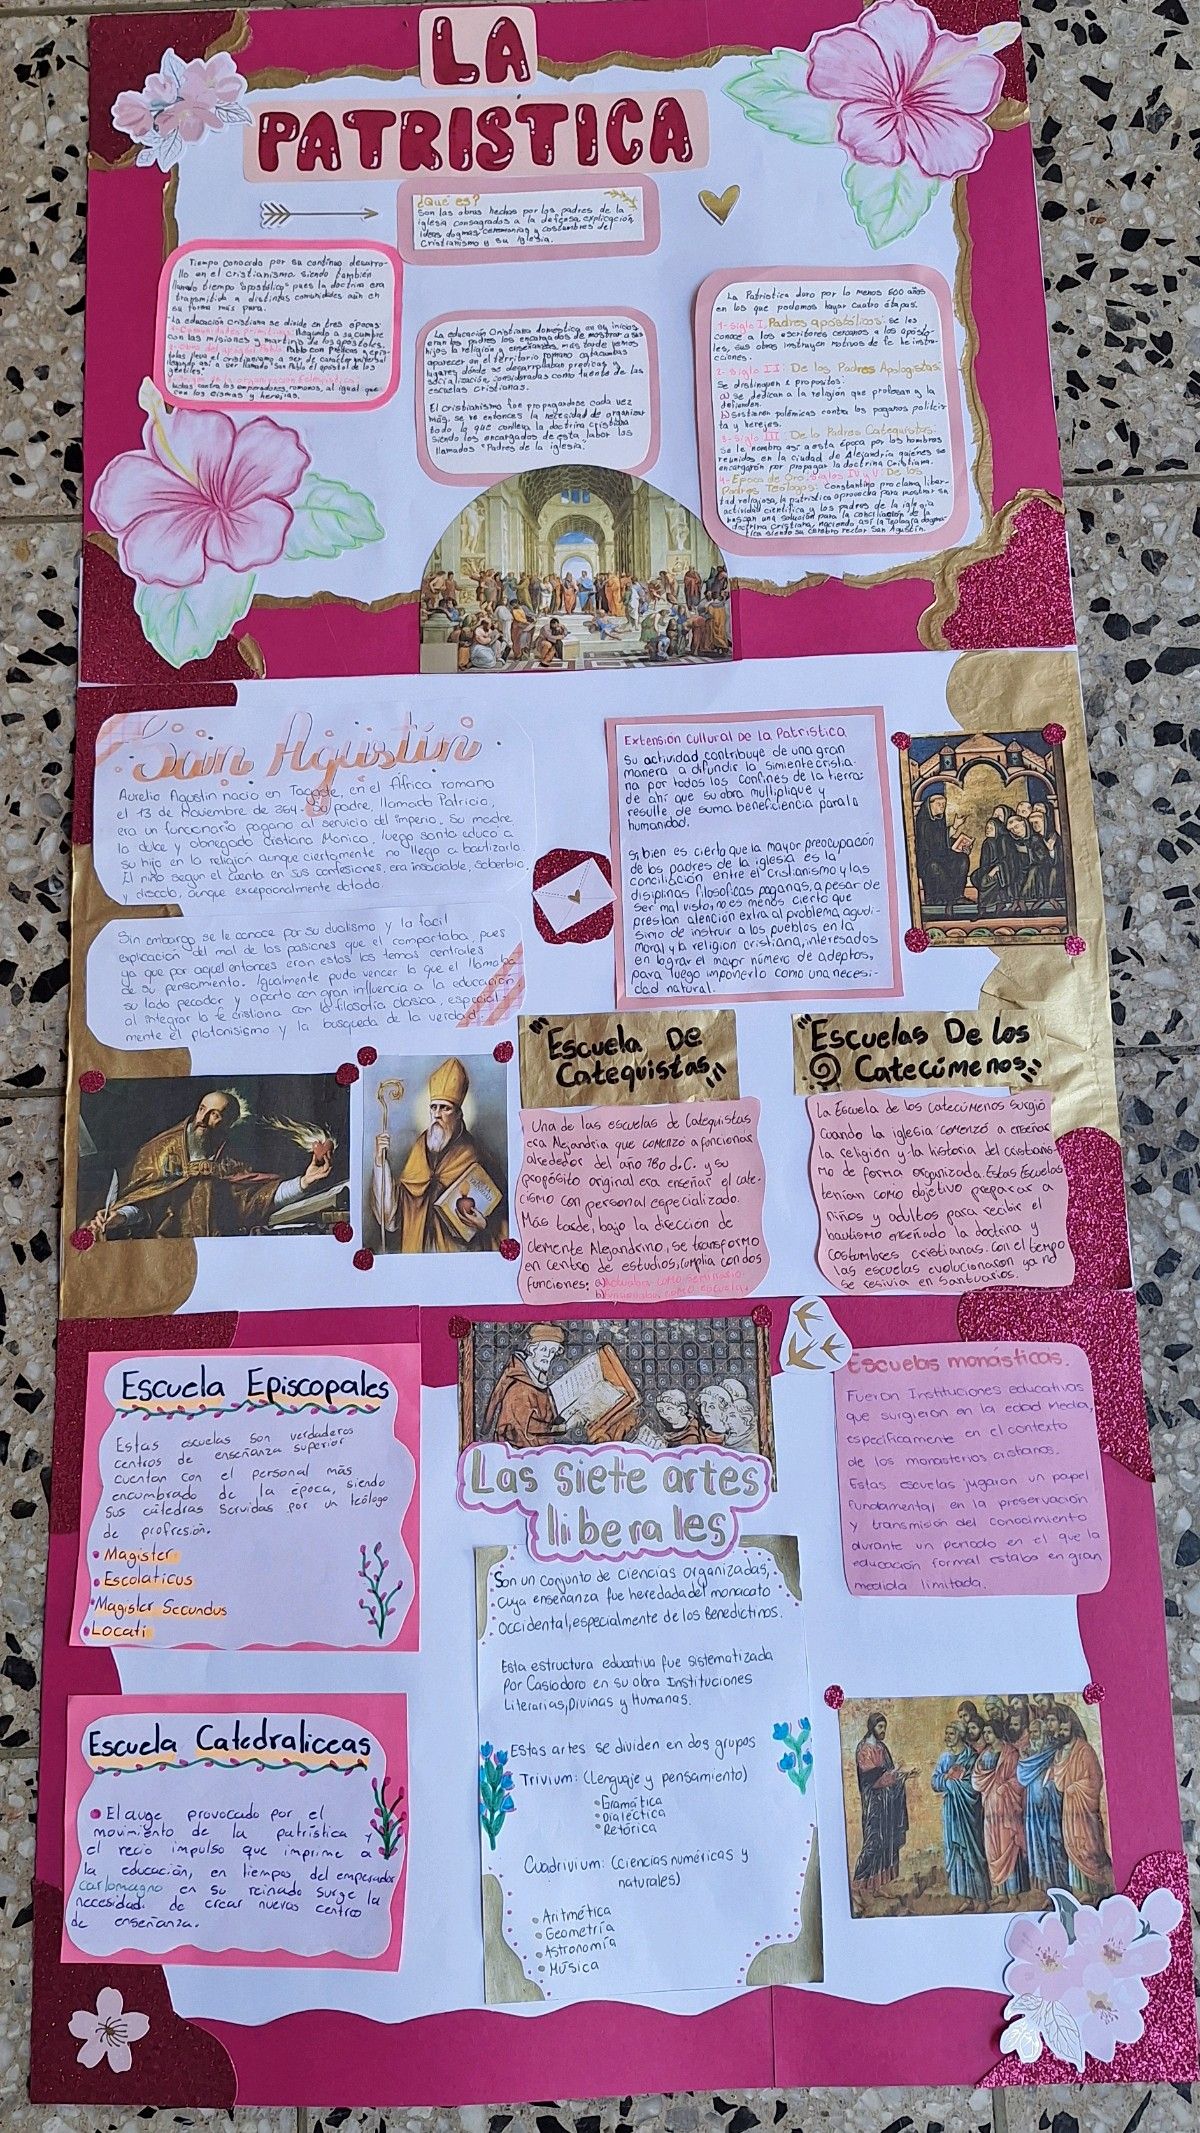 LA
PATRISTICA
¿Qué es?
Son las obras hechas por los padres de la
iglesia consagrados a la defensa, explicación
ideas dogmas ceremonias y costumbres del
Cristianismo y su iglesia.
Tiempo conocido por su continuo desarro-
llo en el cristianismo siendo también
llamado tiempo "apostólico" pues la doctrina era
transmitida a distintas comunidades aún en
su forma más pura.
La educación cristiana se divide en tres épocas:
1-Comunidades Primitivas: llegando a su cumbre
con las misiones y martirio de los apóstoles.
Pablo con Prédicas y epis-
tolas lleva el cristianismo a ser de carácter universal
llegando a ser llamado "San Pablo el apóstol de los
gentiles".
luchas contra los emperadores romanos, al igual que
con los cismas y herejías.
La educación Cristiana doméstica en sus inicios
eran los padres los encargados de mostrar a sus
hijos la religión y enseñanza más tarde vemos
aparecer en el territorio romano catacumbas
lugares dónde se desarrollaban predicas y
socialización consideradas como fuente de las
escuelas cristianas.
El cristianismo fue propagandose cada vez
más, se ve entonces la necesidad de organizar
todo lo que conlleva la doctrina cristiana
siendo los encargados de esta labor los
llamados "Padres de la iglesia".
La Patristica duro por lo menos 600 años
en los que podemos hayar cuatro étapas.
1-Siglo I: Padres apostólicos: se les
conoce a los escritores cercanos a los apósto-
les, sus obras instruyen motivos de fe he instru-
cciones.
2- Siglo II: De los Padres Apologistas:
Se distinguen 2 propositos:
a) se dedican a la religion que profesan y la
defienden.
b) Sostienen polémicas contra los paganos politeis-
ta y herejes.
3-Siglo III: De lo Padres Catequistas:
Se le nombra así a esta época por los hombres
reunidos en la ciudad de Alejandria quienes se
encargaron por propagar la doctrina Cristiana.
4-Epoca de Oro: Siglos IV y V: De los
Padres Teologos: Constantino proclama liber-
tad religiosa, la patristica aprovecha para mostrar su
actividad cientifica y los padres de la iglesia
buscan una solución para la conciliación de la
doctrina Cristiana, naciendo así la Teología dogma-
tica siendo su cerebro rector San Agustin.
San Agustín
Aurelio Agustin nacio en Tagaste, en el África romana
el 13 de Noviembre de 354. Su padre, llamado Patricio,
era un funcionario pagano al servicio del imperio. Su madre
la dulce y abnegada cristiana Monica, luego santa educó a
su hijo en la religión aunque ciertamente no llego a bautizarla.
El niño segun el cuenta en sus confesiones, era insaciable, soberbio,
y discolo, aunque excepcionalmente dotado.
Sin embargo se le conoce por su dualismo y la facil
explicación del mal de las pasiones que el comportaba, pues
ya que por aquel entonces eran estos los temas centrales
de su pensamiento. Igualmente pudo vencer lo que el llamaba
su lado pecador y aporto con gran influencia a la educación,
al integrar la fe cristiana con la filosofia clasica, especial-
mente el platonisismo y la busqueda de la verdad.
Extensión Cultural de La Patrística
Su actividad contribuye de una gran
manera a difundir la simiente cristia-
na por todos los confines de la tierra;
de ahí que su obra multiplique y
resulte de suma beneficencia para la
humanidad.
Si bien es cierto que la mayor preocupación
de los padres de la iglesia es la
conciliación entre el cristianismo y las
disiplinas filosoficas paganas, a pesar de
ser mal visto, no es menos cierto que
prestan atención extra al problema agudi-
simo de instruir a los pueblos en la
moral y la religión cristiana, interesados
en lograr el mayor número de adeptos,
para luego imponerlo como una necesi-
dad natural.
"Escuela De
Catequistas"
Una de las escuelas de Catequistas
era Alejandría que comenzó a funcionar
alrededor del año 180 d.C. y su
propósito original era enseñar el cate-
cismo con personal especializado.
Más tarde, bajo la direccion de
Clemente Alejandrino, se transformo
en centro de estudios, cumplia con dos
funciones: a) Actuaba como seminario.
b) funcionaba como escuela.
"Escuelas De los
Catecúmenos"
La Escuela de los catecúmenos surgió
cuando la iglesia comenzó a enseñar
la religión y la historia del cristianis-
mo de forma organizada. Estas Escuelas
tenían como objetivo preparar a
niños y adultos para recibir el
bautismo enseñado la doctrina y
costumbres cristianas. con el tempo
las escuelas evolucionaron ya no
se resivia en Santuarios.
Escuela Episcopales
Estas escuelas son verdaderos
centros de enseñanza superior
cuentan con el personal más
encumbrado de la época, siendo
sus cátedras servidas por un teólogo
de profesión.
Magister
Escolaticus
Magister Secundus
Locati
Las siete artes
liberales
Son un conjunto de ciencias organizadas,
cuya enseñanza fue heredada del monacato
occidental, especialmente de los Benedictinos.
Esta estructura educativa fue sistematizada
por Casiodoro en su obra Instituciones
Literarias, Divinas y Humanas.
Estas artes se dividen en dos grupos
Trivium: (Lenguaje y pensamiento)
Gramática
Dialéctica
Retórica
Cuadrivium: (ciencias numéricas y
naturales)
Aritmética
Geometría
Astronomía
Música
Escuelas monásticas.
Fueron Instituciones educativas
que surgieron en la edad Media,
específicamente en el contexto
de los monasterios cristianos.
Estas escuelas jugaron un papel
fundamental en la preservación
y transmisión del conocimiento
durante un periodo en el que la
educación formal estaba en gran
medida limitada.
Escuela Catedraliceas
El auge provocado por el
movimiento de la patrística y
el recio impulso que imprime a
la educación, en tiempos del emperador
Carlomagno en su reinado surge la
necesidad de crear nuevos centros
de enseñanza.